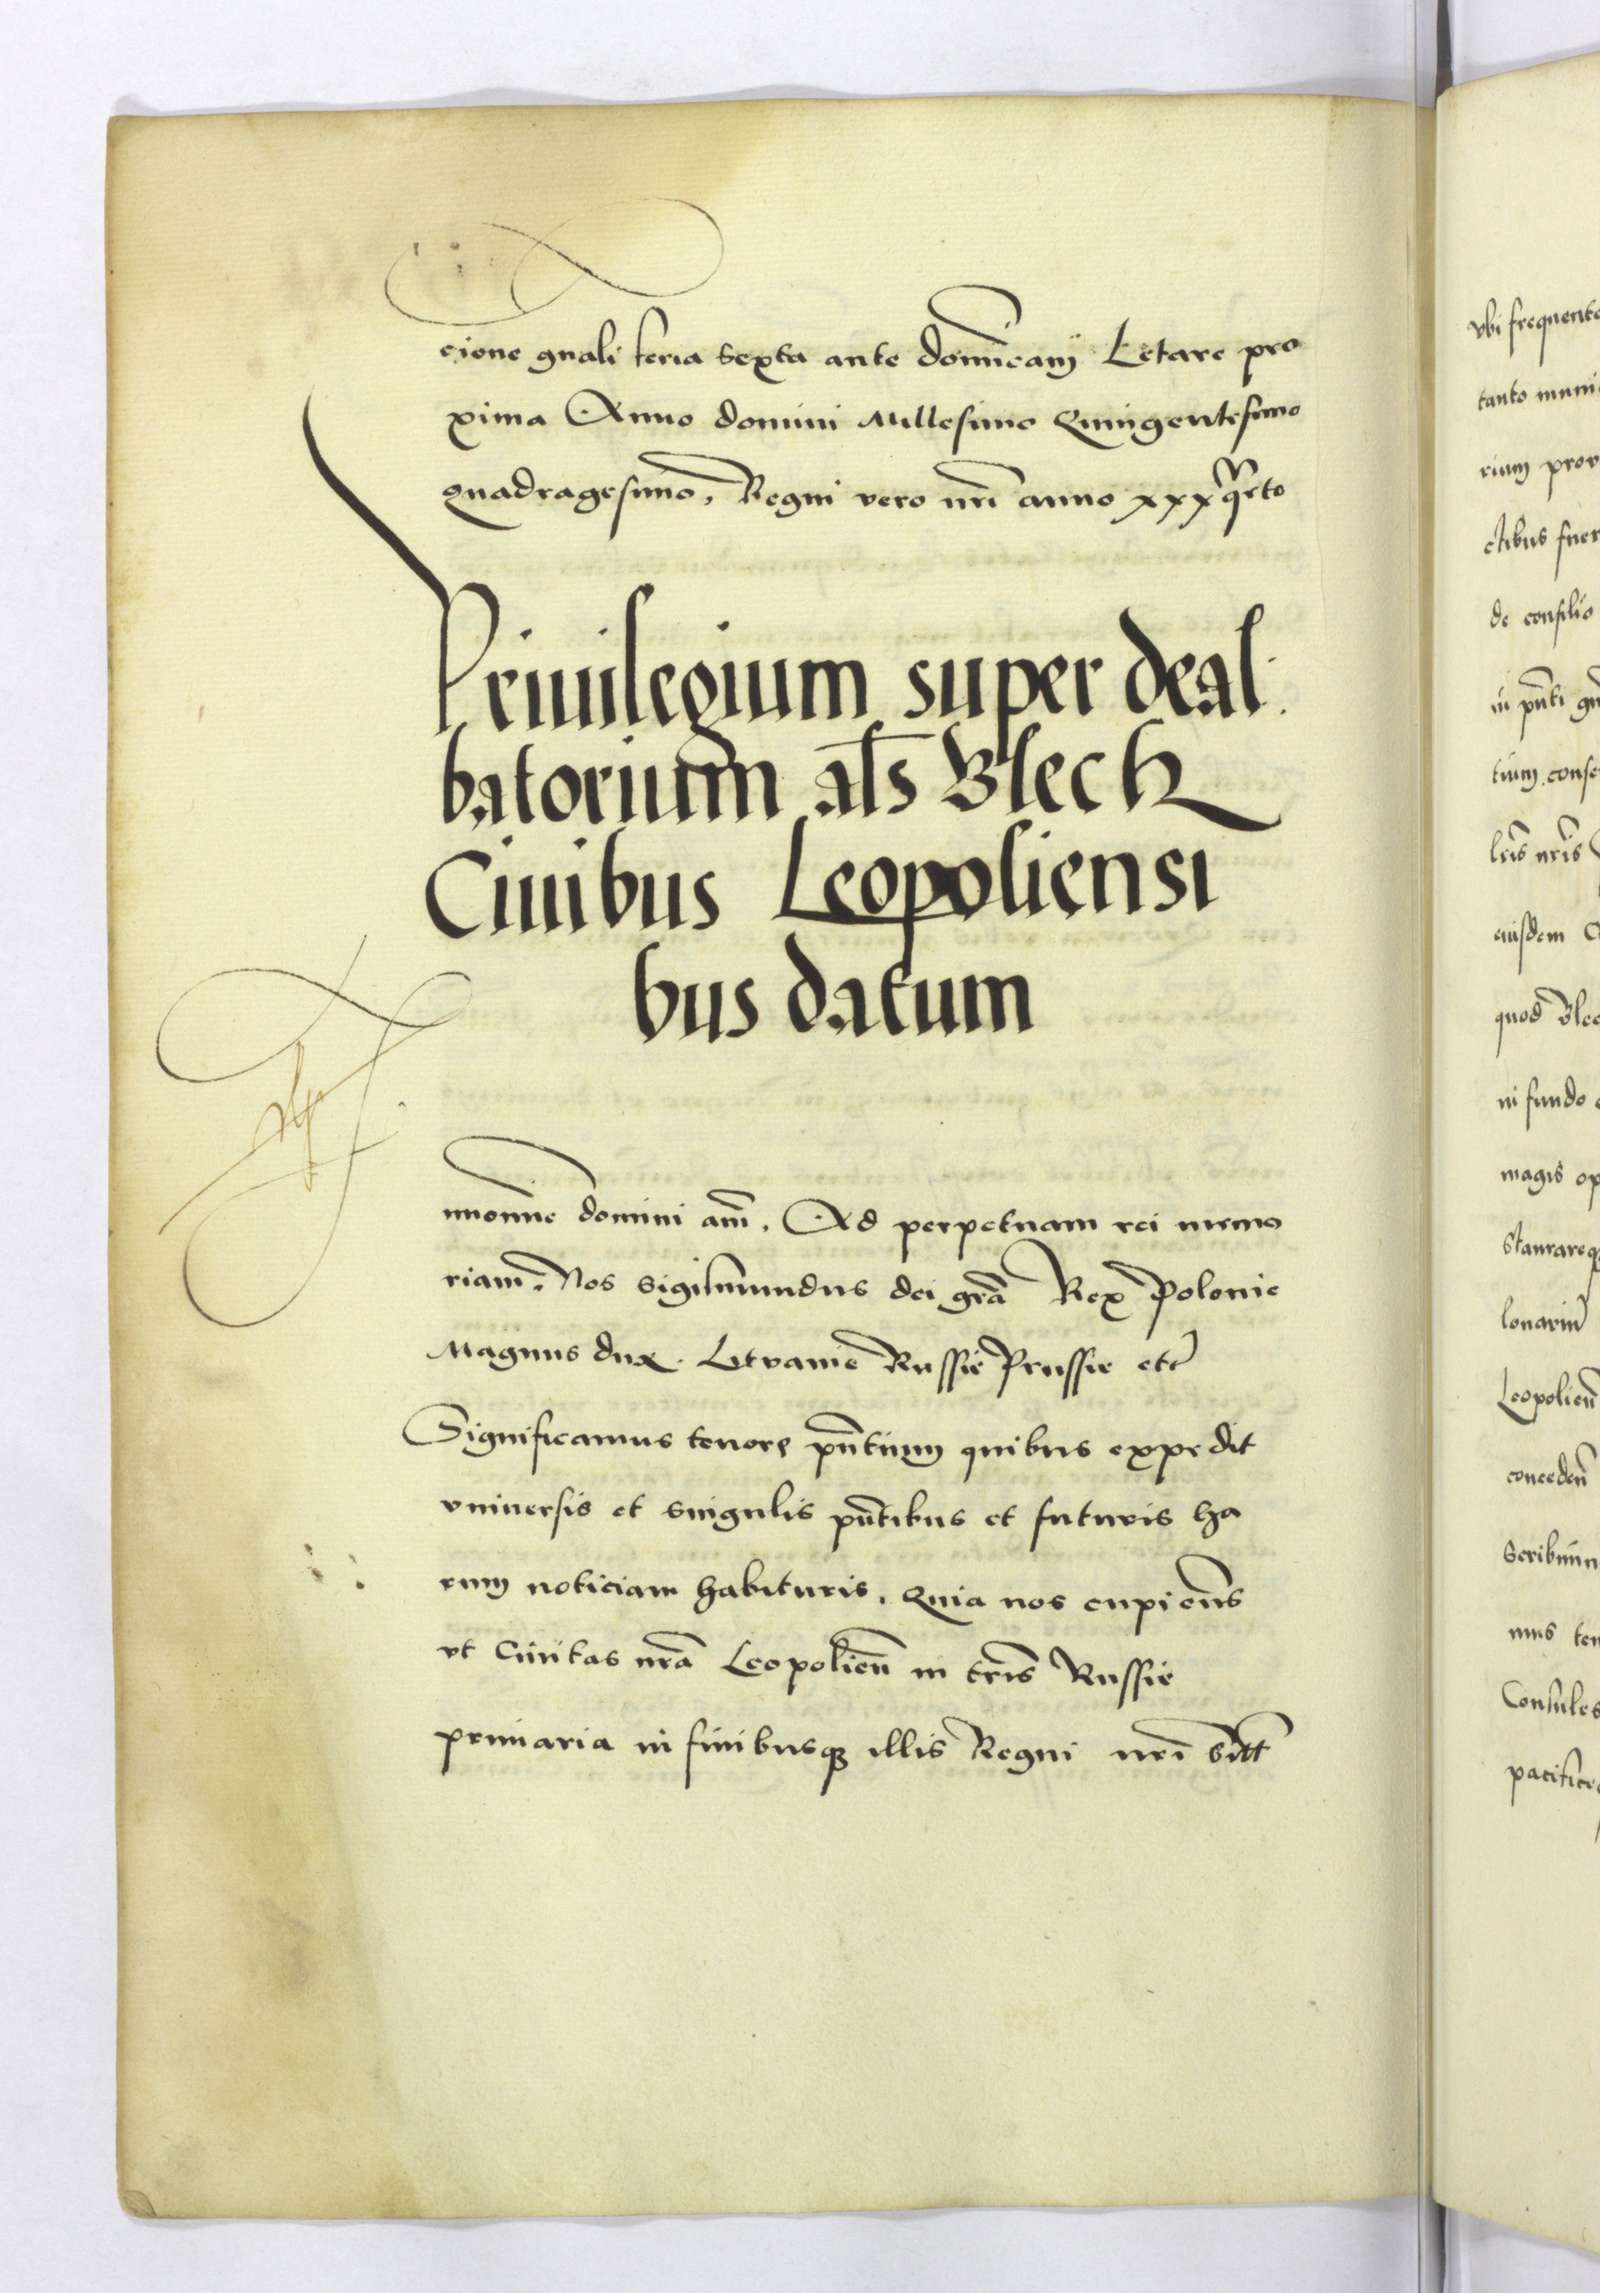 cione gnali feria sexta ante dominicam Letare pro
xima Anno domini Millesimo Quingentesimo
quadragesimo. Regni vero nri anno xxx qrto
Priuilegium super deal
batorium als Blech
Ciuibus Leopoliensi
bus datum
domini am. Ad perpetuam rei memo
riam. Nos Sigismundus dei gra Rex Polonie
Magnus dux Litvanie Russie Prussie etc
Significamus tenore pntium quibus expedit
vniuersis et singulis pntibus et futuris ha
rum noticiam habituris. Quia nos cupiens
vt Ciuitas nra Leopolien in tris Russie
primaria in finibusq illis Regni nri
vbi frequent
tanto muni
rium prov
ctibus fuer
de consilio
in pnti gn
tium conse
lris nris
eiusdem
quod Blec
in fundo
magis op
staurareq
Leopolien
conceden
scribimn
mus ten
Consules
pacifice